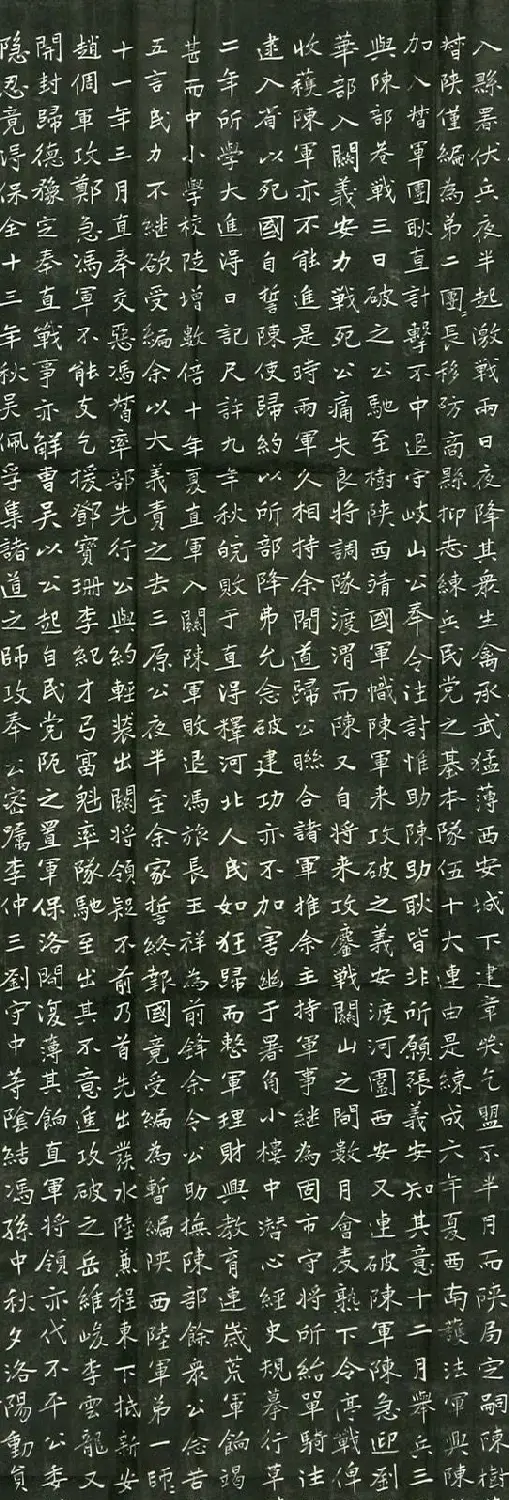 入縣署伏兵夜半起激戰兩日夜降其衆生禽承武猛薄西安城下建章哭乞盟不半月而陝局定嗣陳樹
督陝僅編為第二團長移防商縣抑志練兵民党之基本隊伍十大連由是練成六年夏西南護法軍興陳
加入督軍團耿直計擊不中退守岐山公奉令往討惟助陳助耿皆非所願張義安知其意十二月舉兵三
與陳部巷戰三日破之公馳至樹陝西靖國軍幟陳軍来攻破之義安渡河圍西安又連破陳軍陳急迎劉
華部入關義安力戰死公痛失良将調隊渡渭而陳又自将来攻鏖戰關山之間數月會麦熟下令停戰俾
收穫陳軍亦不能進是時兩軍久相持余間道歸公聯合諸軍推余主持軍事継為固市守将所紿單騎往
逮入省以死國自誓陳使歸約以所部降弗允念破建功亦不加害幽于署角小樓中潜心經史規摹行草
二年所學大進淂日記尺許九年秋皖敗于直淂釋河北人民如狂歸而整軍理財興教育連歲荒軍餉竭
甚而中小學校陡增數倍十年夏直軍入關陳軍敗退馮旅長玉祥為前鋒余令公助撫陳部餘衆公念苦
五言民力不継欲受編余以大義責之去三原公夜半至余家誓終報國竟受編為暫編陝西陸軍第一師
十一年三月直奉交惡馮督率部先行公與約輕装出關将領疑不前乃首先出發水陸兼程東下抵新安
趙倜軍攻鄭急馮軍不能支乞援鄧寶珊李紀才弓富魁率隊馳至出其不意進攻破之岳維峻李雲龍又
開封歸德豫定奉直戰事亦解曹吳以公起自民党阨之置軍保洛間復薄其餉直軍将領亦代不平公委
隱忍竟淂保全十三年秋吳佩孚集諸道之師攻奉公密囑李仲三劉守中等陰結馮孫中秋夕洛陽動員